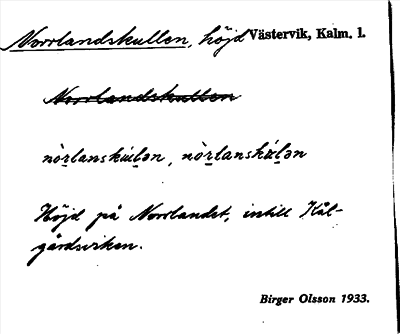 Norrlandskullen, höjd Västervik, Kalm. l.
Norrlandskullen
nòṟlanskúḻən, nòṟlanskúḻən
Höjd på Norrlandet, intill Kål-
gårdsviken.
Birger Olsson 1933.